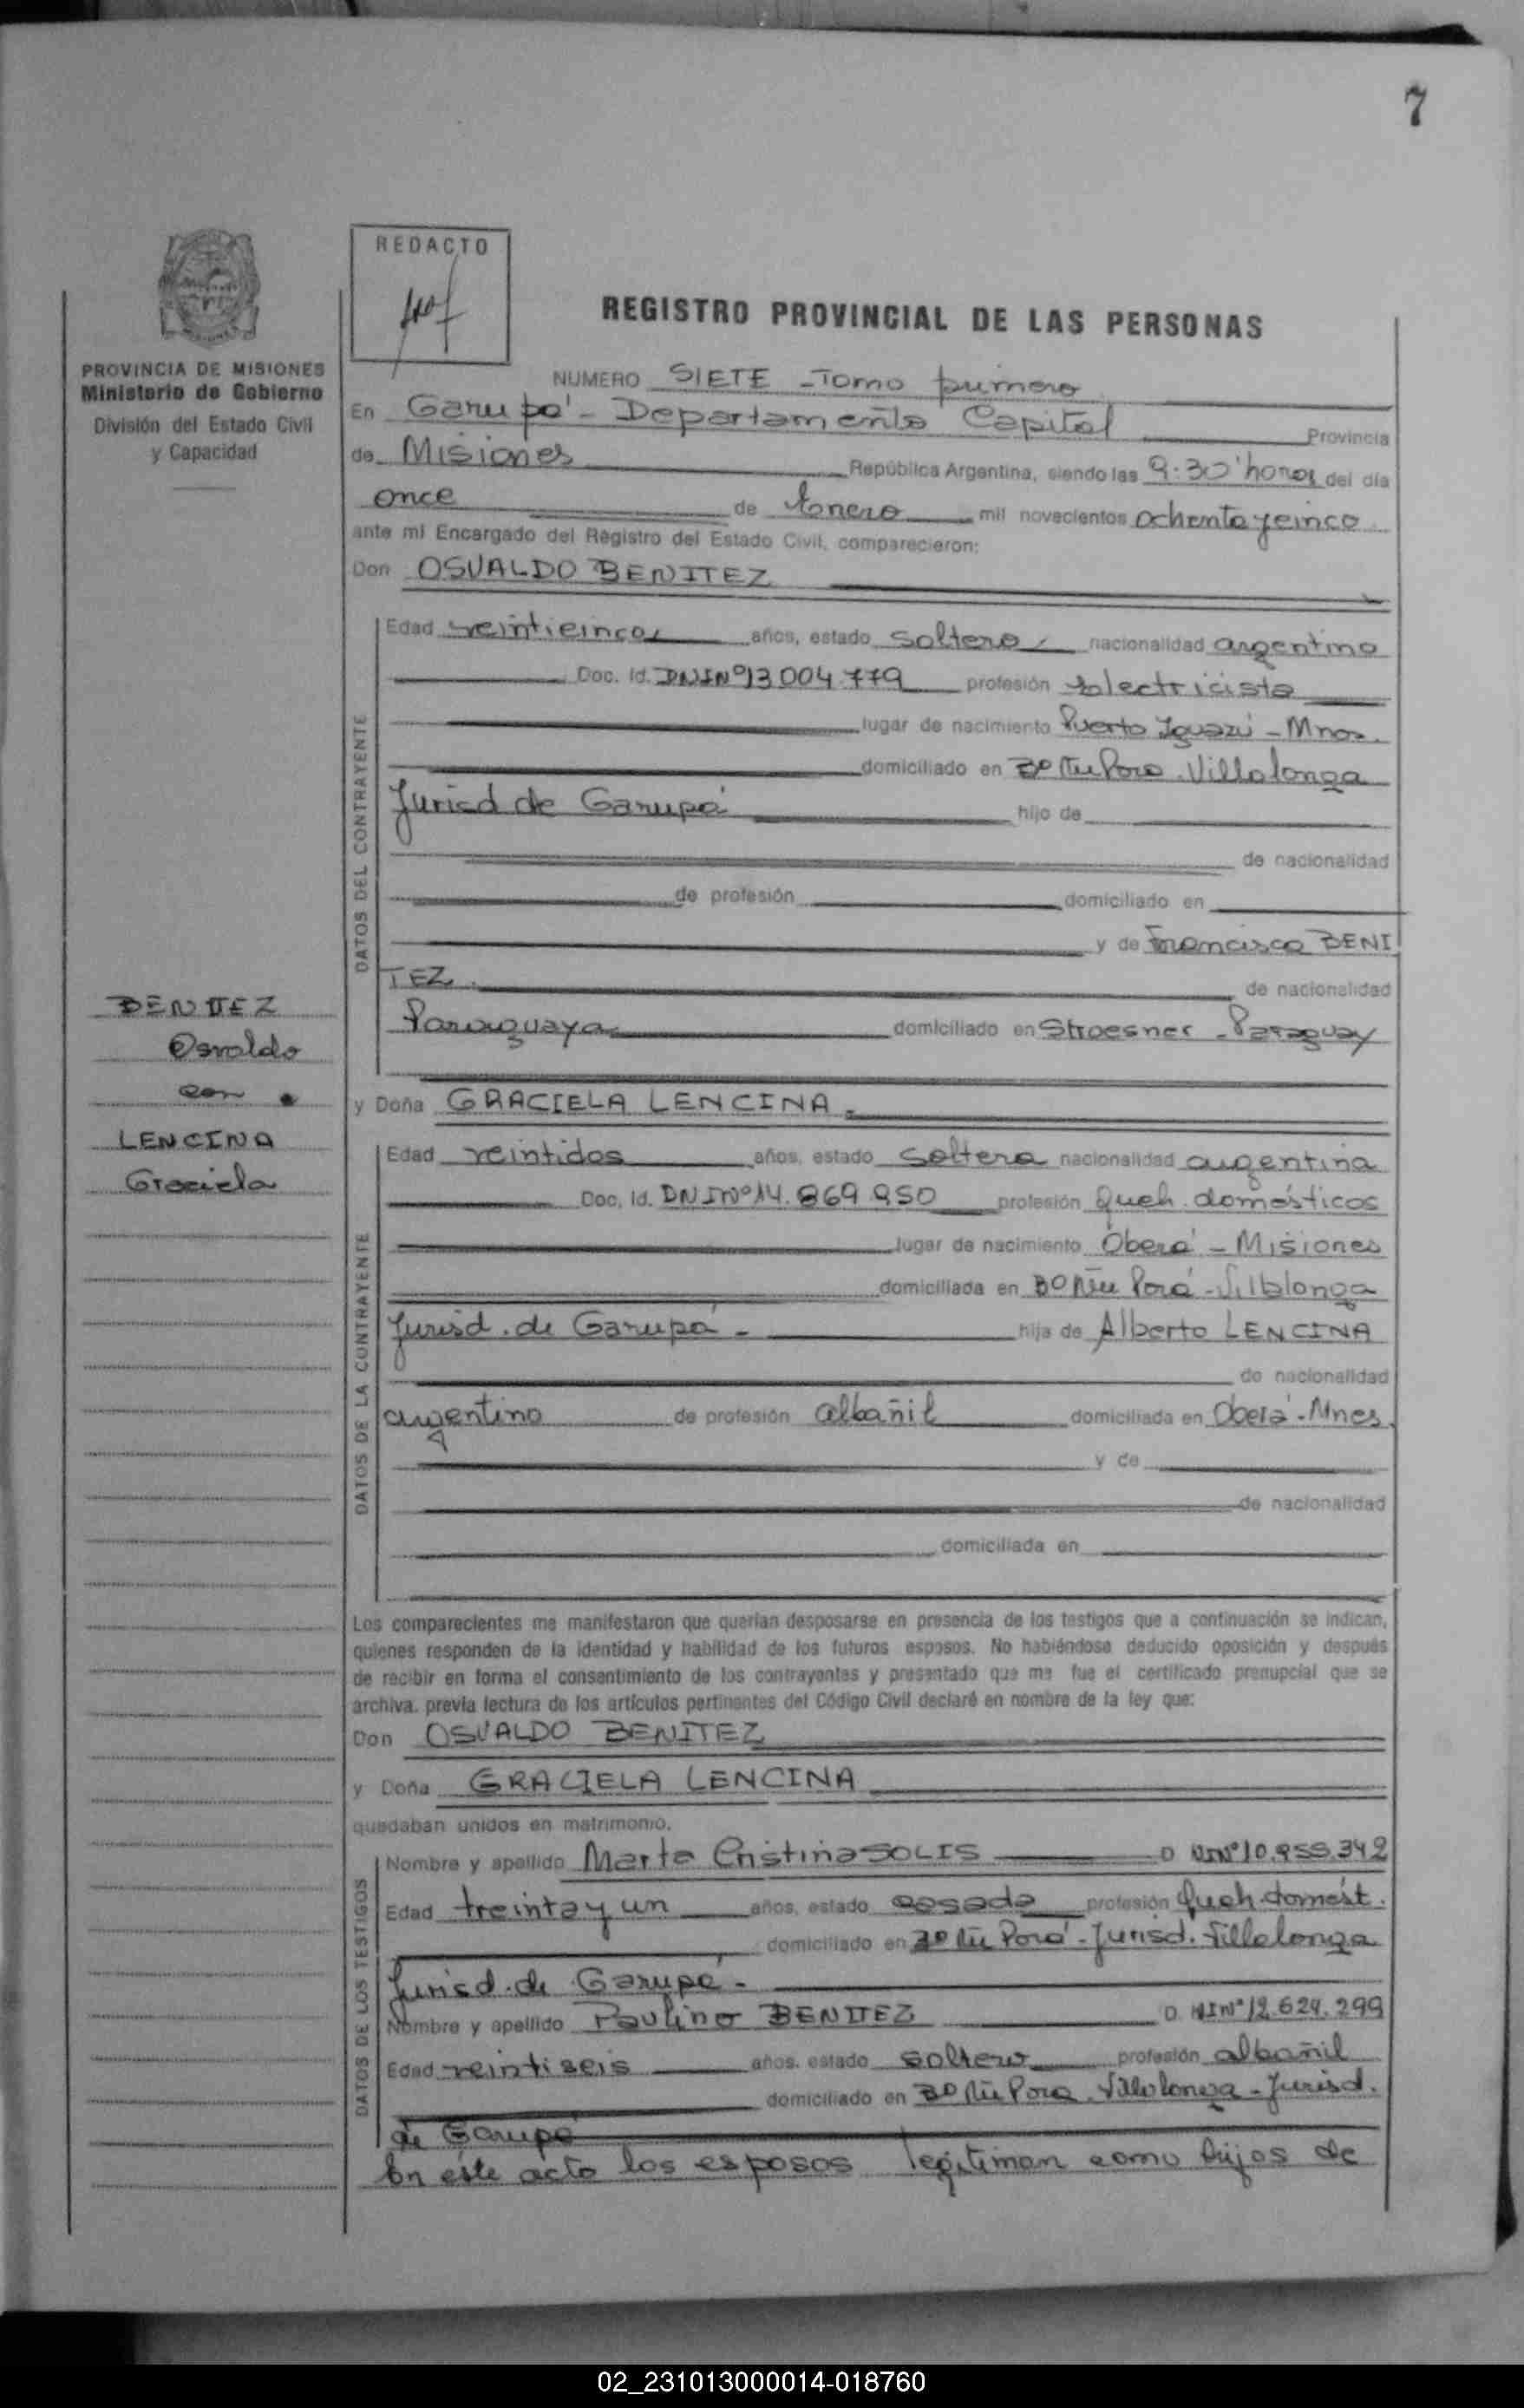 7
REDACTO
REGISTRO PROVINCIAL DE LAS PERSONAS
PROVINCIA DE MISIONES
Ministerio de Gobierno
División del Estado Civil
y Capacidad
NUMERO SIETE - Tomo primero
En Garupá - Departamento Capital Provincia
de Misiones República Argentina, siendo las 9:30 horas del día
once de Enero mil novecientos ochenta y cinco
ante mi Encargado del Registro del Estado Civil, comparecieron:
Don OSVALDO BENITEZ
DATOS DEL CONTRAYENTE
Edad veinticinco años, estado soltero nacionalidad argentino
Doc. Id. DNI Nº 13.004.779 profesión electricista
lugar de nacimiento Puerto Iguazú - Mnes.
domiciliado en Bº Ñu Porá Villalonga
Jurisd de Garupá hijo de
de nacionalidad
de profesión domiciliado en
y de Francisca BENI
TEZ de nacionalidad
Paraguaya domiciliado en Stroesner - Paraguay
BENITEZ
Osvaldo
con
LENCINA
Graciela
y Doña GRACIELA LENCINA
DATOS DE LA CONTRAYENTE
Edad veintidos años, estado soltera nacionalidad argentina
Doc. Id. DNI Nº 14.869.950 profesión queh. domésticos
lugar de nacimiento Oberá - Misiones
domiciliada en Bº Ñu Porá - Villalonga
Jurisd. de Garupá - hija de Alberto LENCINA
de nacionalidad
argentino de profesión albañil domiciliada en Oberá - Mnes.
y de
de nacionalidad
domiciliada en
Los comparecientes me manifestaron que querían desposarse en presencia de los testigos que a continuación se indican,
quienes responden de la identidad y habilidad de los futuros esposos. No habiéndose deducido oposición y después
de recibir en forma el consentimiento de los contrayentes y presentado que me fue el certificado prenupcial que se
archiva, previa lectura de los artículos pertinentes del Código Civil declaré en nombre de la ley que:
Don OSVALDO BENITEZ
y Doña GRACIELA LENCINA
quedaban unidos en matrimonio.
DATOS DE LOS TESTIGOS
Nombre y apellido Marta Cristina SOLIS D NI Nº 10.955.342
Edad treinta y un años, estado casada profesión queh. domést.
domiciliado en Bº Ñu Porá - Jurisd. Villalonga
Jurisd. de Garupá -
Nombre y apellido Paulino BENITEZ D. NI Nº 12.624.299
Edad veintiseis años, estado soltero profesión albañil
domiciliado en Bº Ñu Pora Villalonga - Jurisd.
de Garupá
En éste acto los esposos legitiman como hijos de
02_231013000014-018760